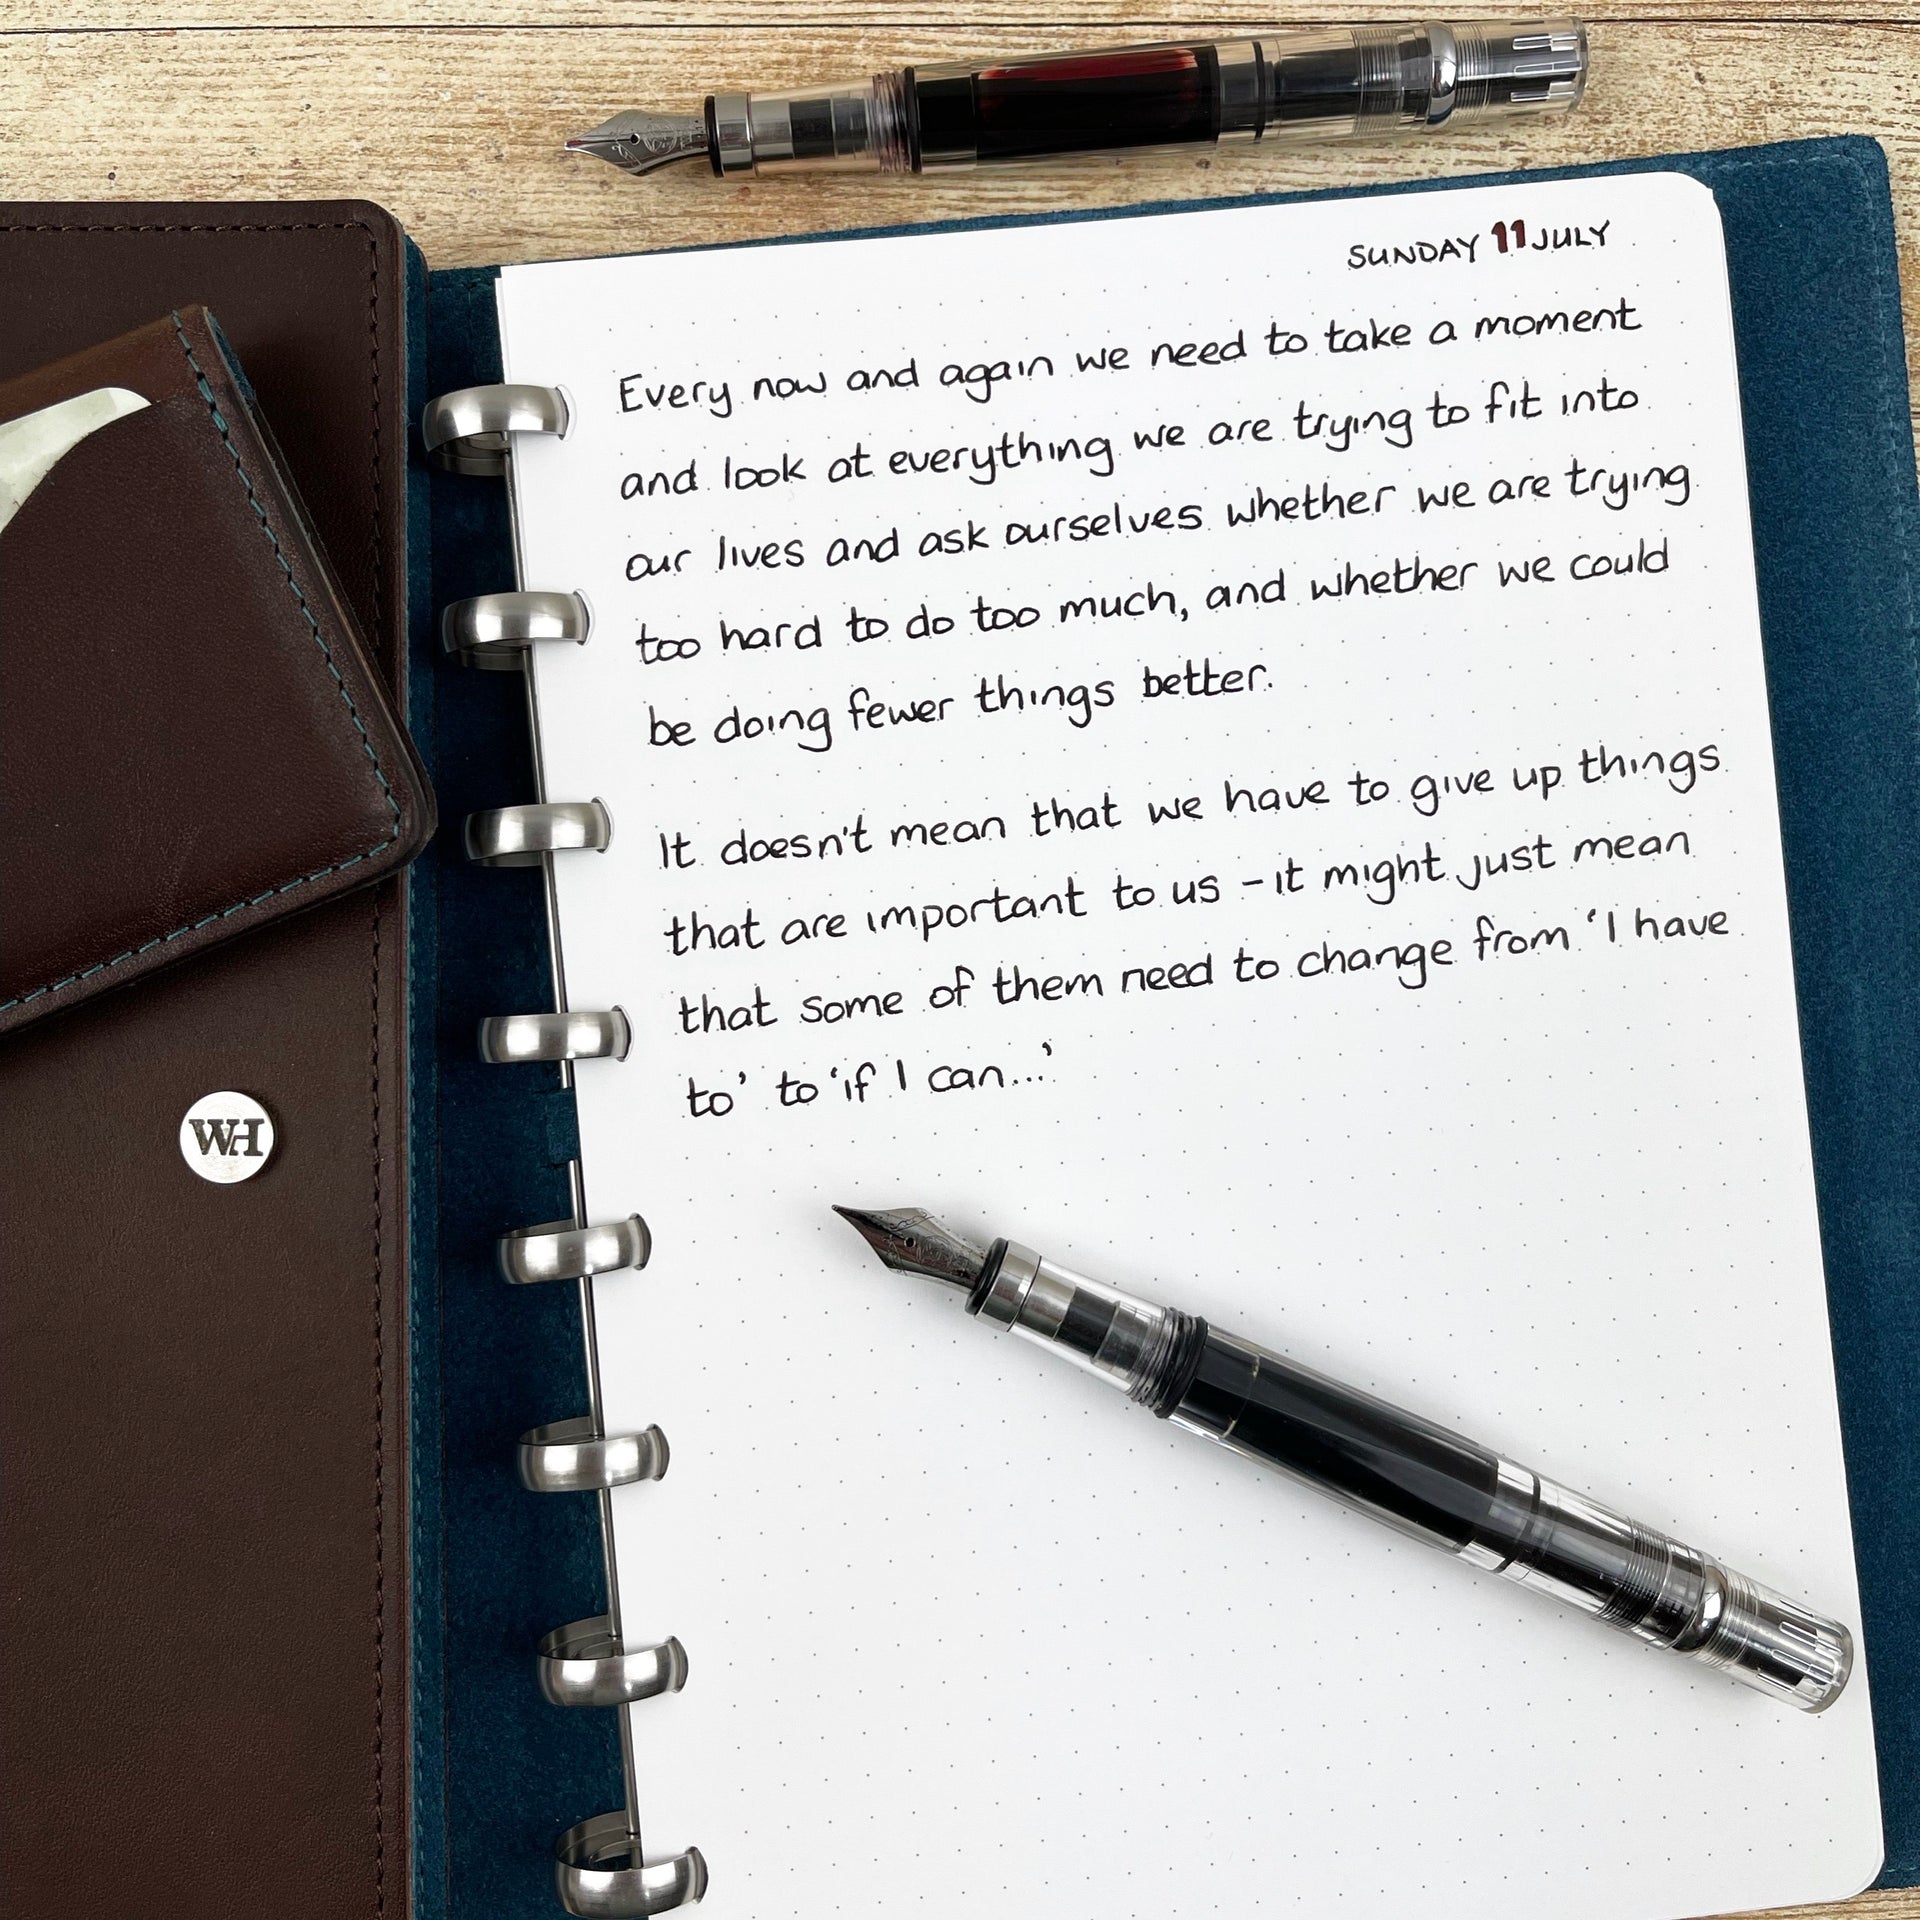 SUNDAY 11 JULY
Every now and again we need to take a moment
and look at everything we are trying to fit into
our lives and ask ourselves whether we are trying
too hard to do too much, and whether we could
be doing fewer things better.
It doesn't mean that we have to give up things
that are important to us - it might just mean
that some of them need to change from 'I have
to' to 'if I can...'
WH